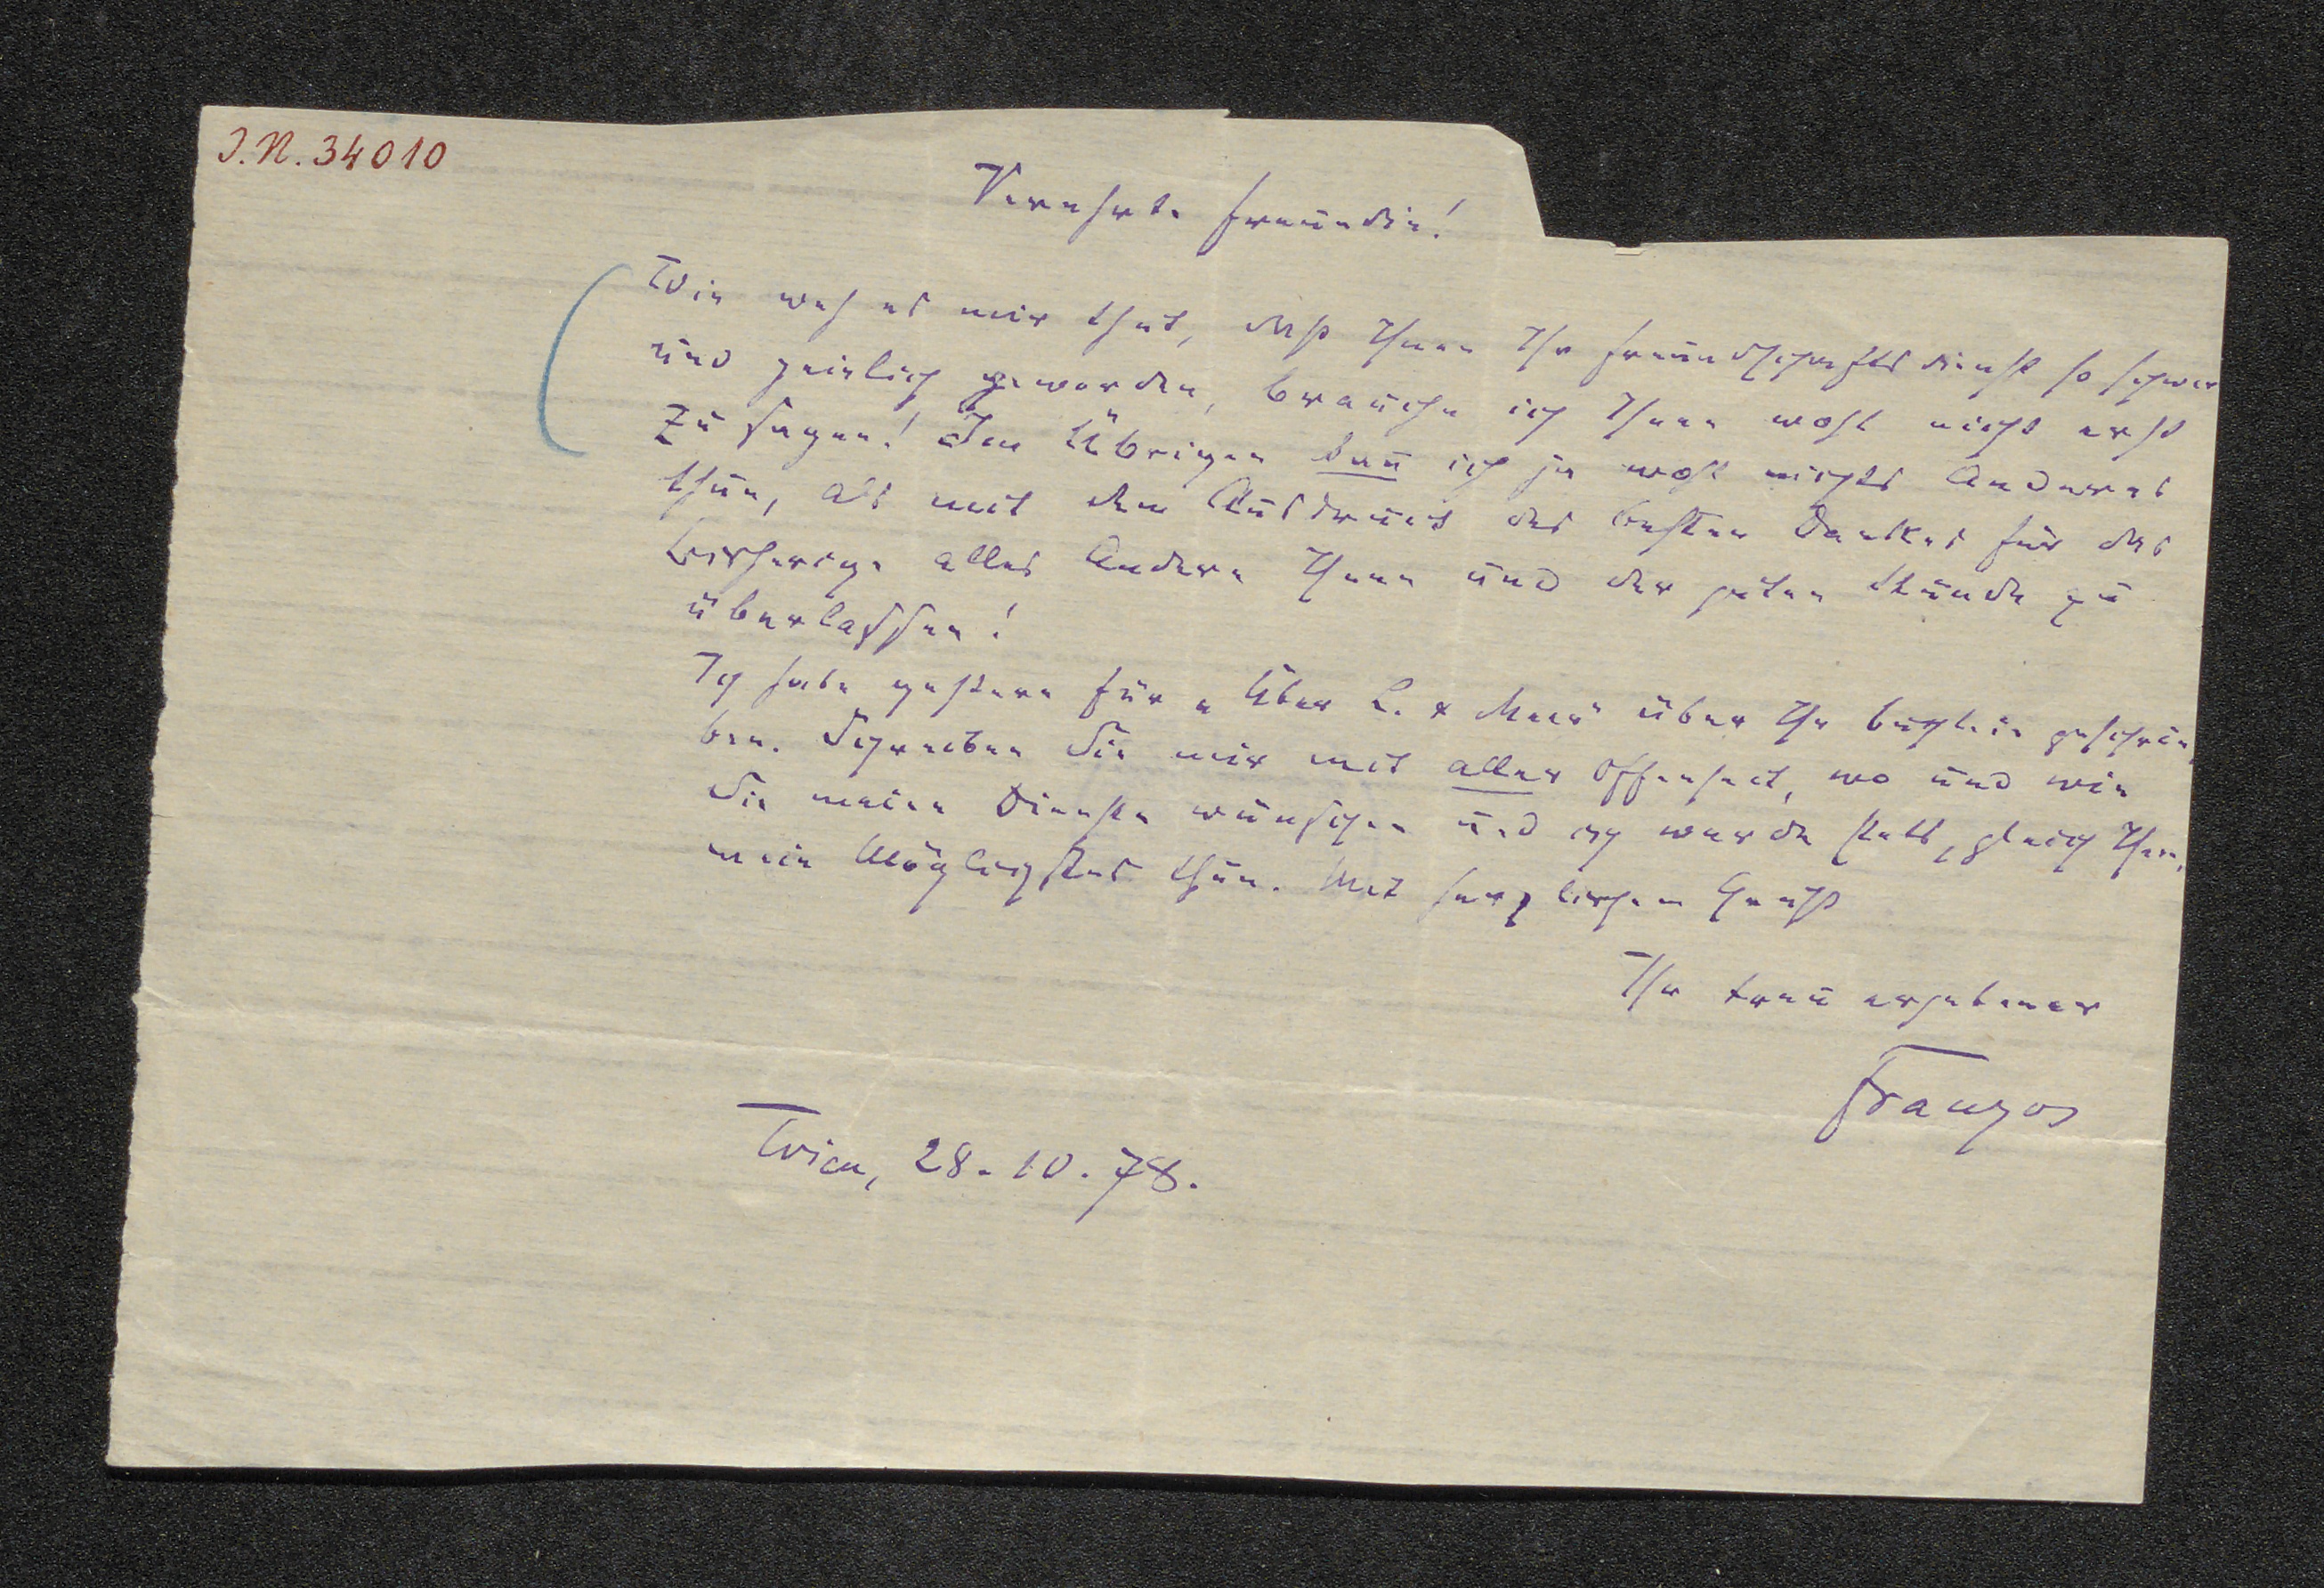 J.N. 34010
Verehrte Freundin!
Wie weh es mir thut, daß Ihnen Ihr Freundschaftsdienst so schwer
und peinlich geworden, brauche ich Ihnen wohl nicht erst
zu sagen! Im Übrigen kann ich ja wohl nichts Anderes
thun, als mit dem Ausdruck des besten Dankes für das
bisherige alles Andere Ihnen und der guten Stunde zu
überlassen!
Ich habe gestern für „Über L. & Meer" über Ihr Büchlein geschrie-
ben. Schreiben Sie mir mit aller Offenheit, wo und wie
Sie meine Dienste wünschen und ich werde stets, gleich Ihnen,
mein Möglichstes thun. Mit herzlichem Gruß
Ihr treu ergebener
Franzos
Wien, 28.10.78.